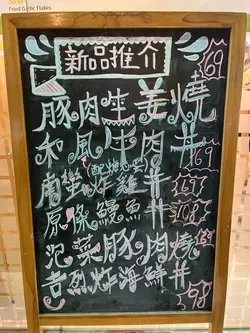 Fried Garlic Flakes
新品推介
豚肉生姜燒 $69
和風牛肉丼 $69
(配燒汁)
膚蠻炸雞丼
原條鰻魚丼 $108
泡菜豚肉燒
吉烈炸海鮮丼 $98